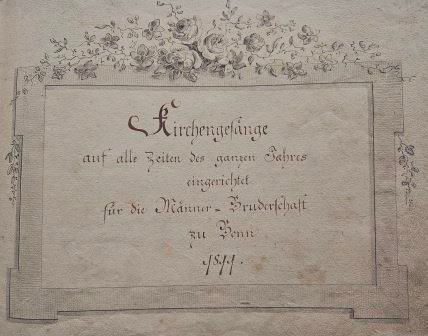 Kirchengesänge
auf alle Zeiten des ganzen Jahres
eingerichtet
für die Männer-Bruderschaft
zu Bonn